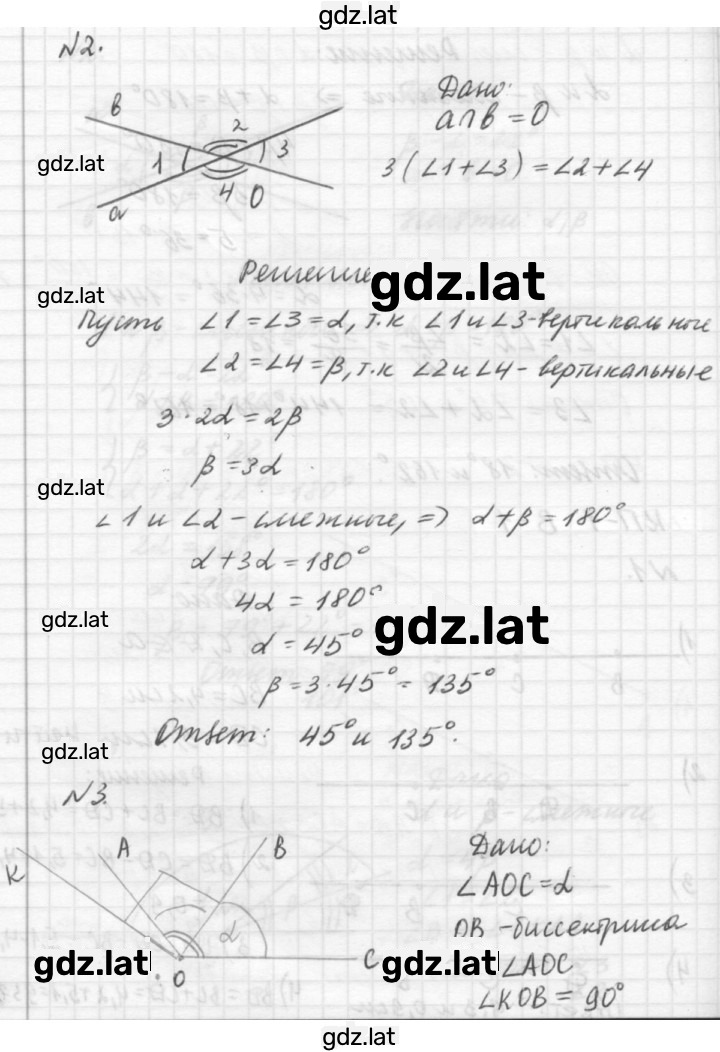 gdz.lat
N2.
Дано:
a∩b = O
3(∠1+∠3) = ∠2+∠4
b
2
1
3
4
O
a
gdz.lat
Решение
gdz.lat
gdz.lat
Пусть ∠1 = ∠3 = α, т.к ∠1 и ∠3 - вертикальные
∠2 = ∠4 = β, т.к ∠2 и ∠4 - вертикальные
3·2α = 2β
β = 3α
gdz.lat
∠1 и ∠2 - смежные, => α+β = 180°
α+3α = 180°
4α = 180°
gdz.lat
gdz.lat
α = 45°
β = 3·45° = 135°
Ответ: 45° и 135°.
gdz.lat
N3.
K
A
B
α
C
O
Дано:
∠AOC = α
OB - биссектриса
∠AOC
∠KOB = 90°
gdz.lat
gdz.lat
gdz.lat